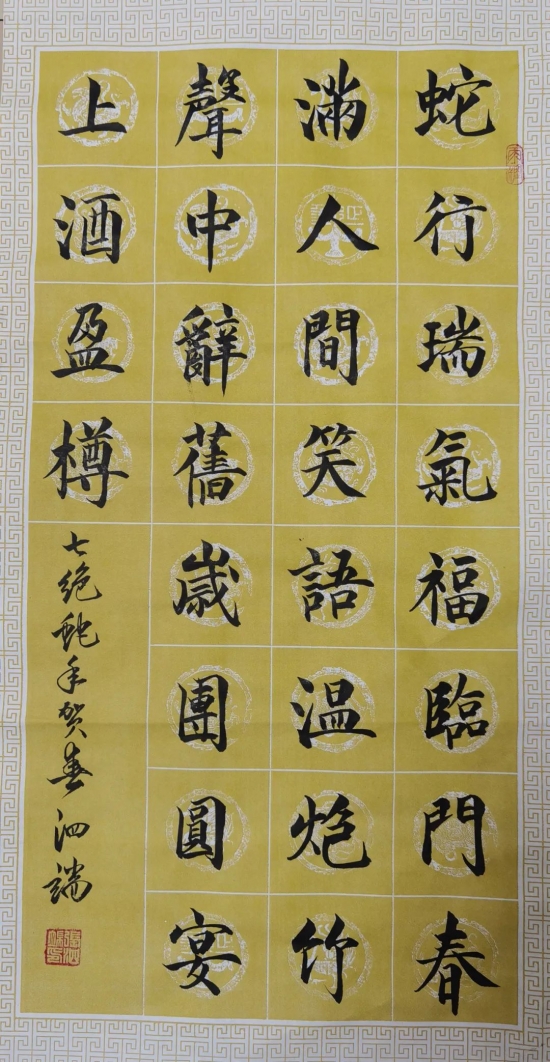 蛇行瑞氣福臨門春
滿人間笑語温炮竹
聲中辭舊歲團圓宴
上酒盈樽
七绝蛇年贺春泗端